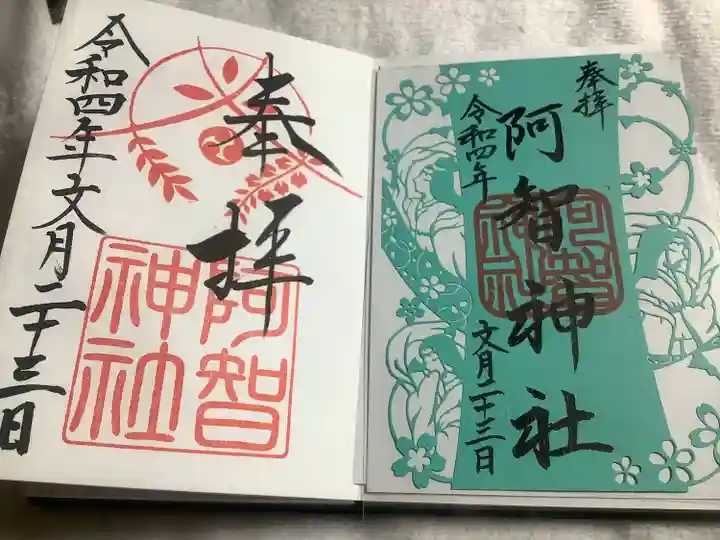 奉拝
令和四年文月二十三日
阿智
神社
奉拝
阿智神社
令和四年
文月二十三日
阿智
神社